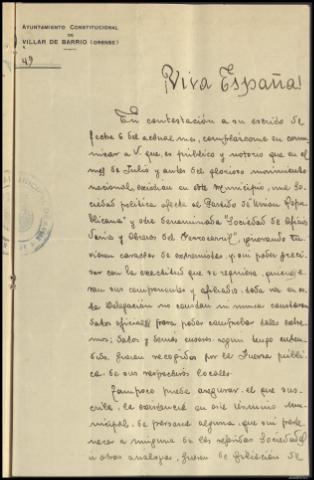 AYUNTAMIENTO CONSTITUCIONAL
DE
VILLAR DE BARRIO (ORENSE)
49
¡Viva España!
En contestación a su escrito de
fecha 6 del actual mes, complázcome en comu-
nicar a V. que, es público y notorio que en el
mes de Julio y antes del glorioso movimiento
nacional, existían en este municipio, una So-
ciedad política afecta al Partido de Unión Repu-
blicana" y otra denominada "Sociedad de Oficios
Varios y Obreros del Ferrocarril", ignorando tu-
vieran caracter de extremistas, y sin poder preci-
sar con la exactitud que se requiere, quienes e-
ran sus componentes y afiliados, toda vez en es-
ta Delegación no constan ni nunca constaron
datos oficiales para poder comprobar tales extre-
mos; datos y demás enseres segun tengo enten-
dido, fueron recogidos por la Fuerza públi-
ca de sus respectivos locales.
Tampoco puede asegurar el que sus-
cribe, la existencia en este término mu-
nicipal, de persona alguna, que sin perte-
necer a ninguna de las referidas Sociedades
ú otras analogas, fueran de filiación de